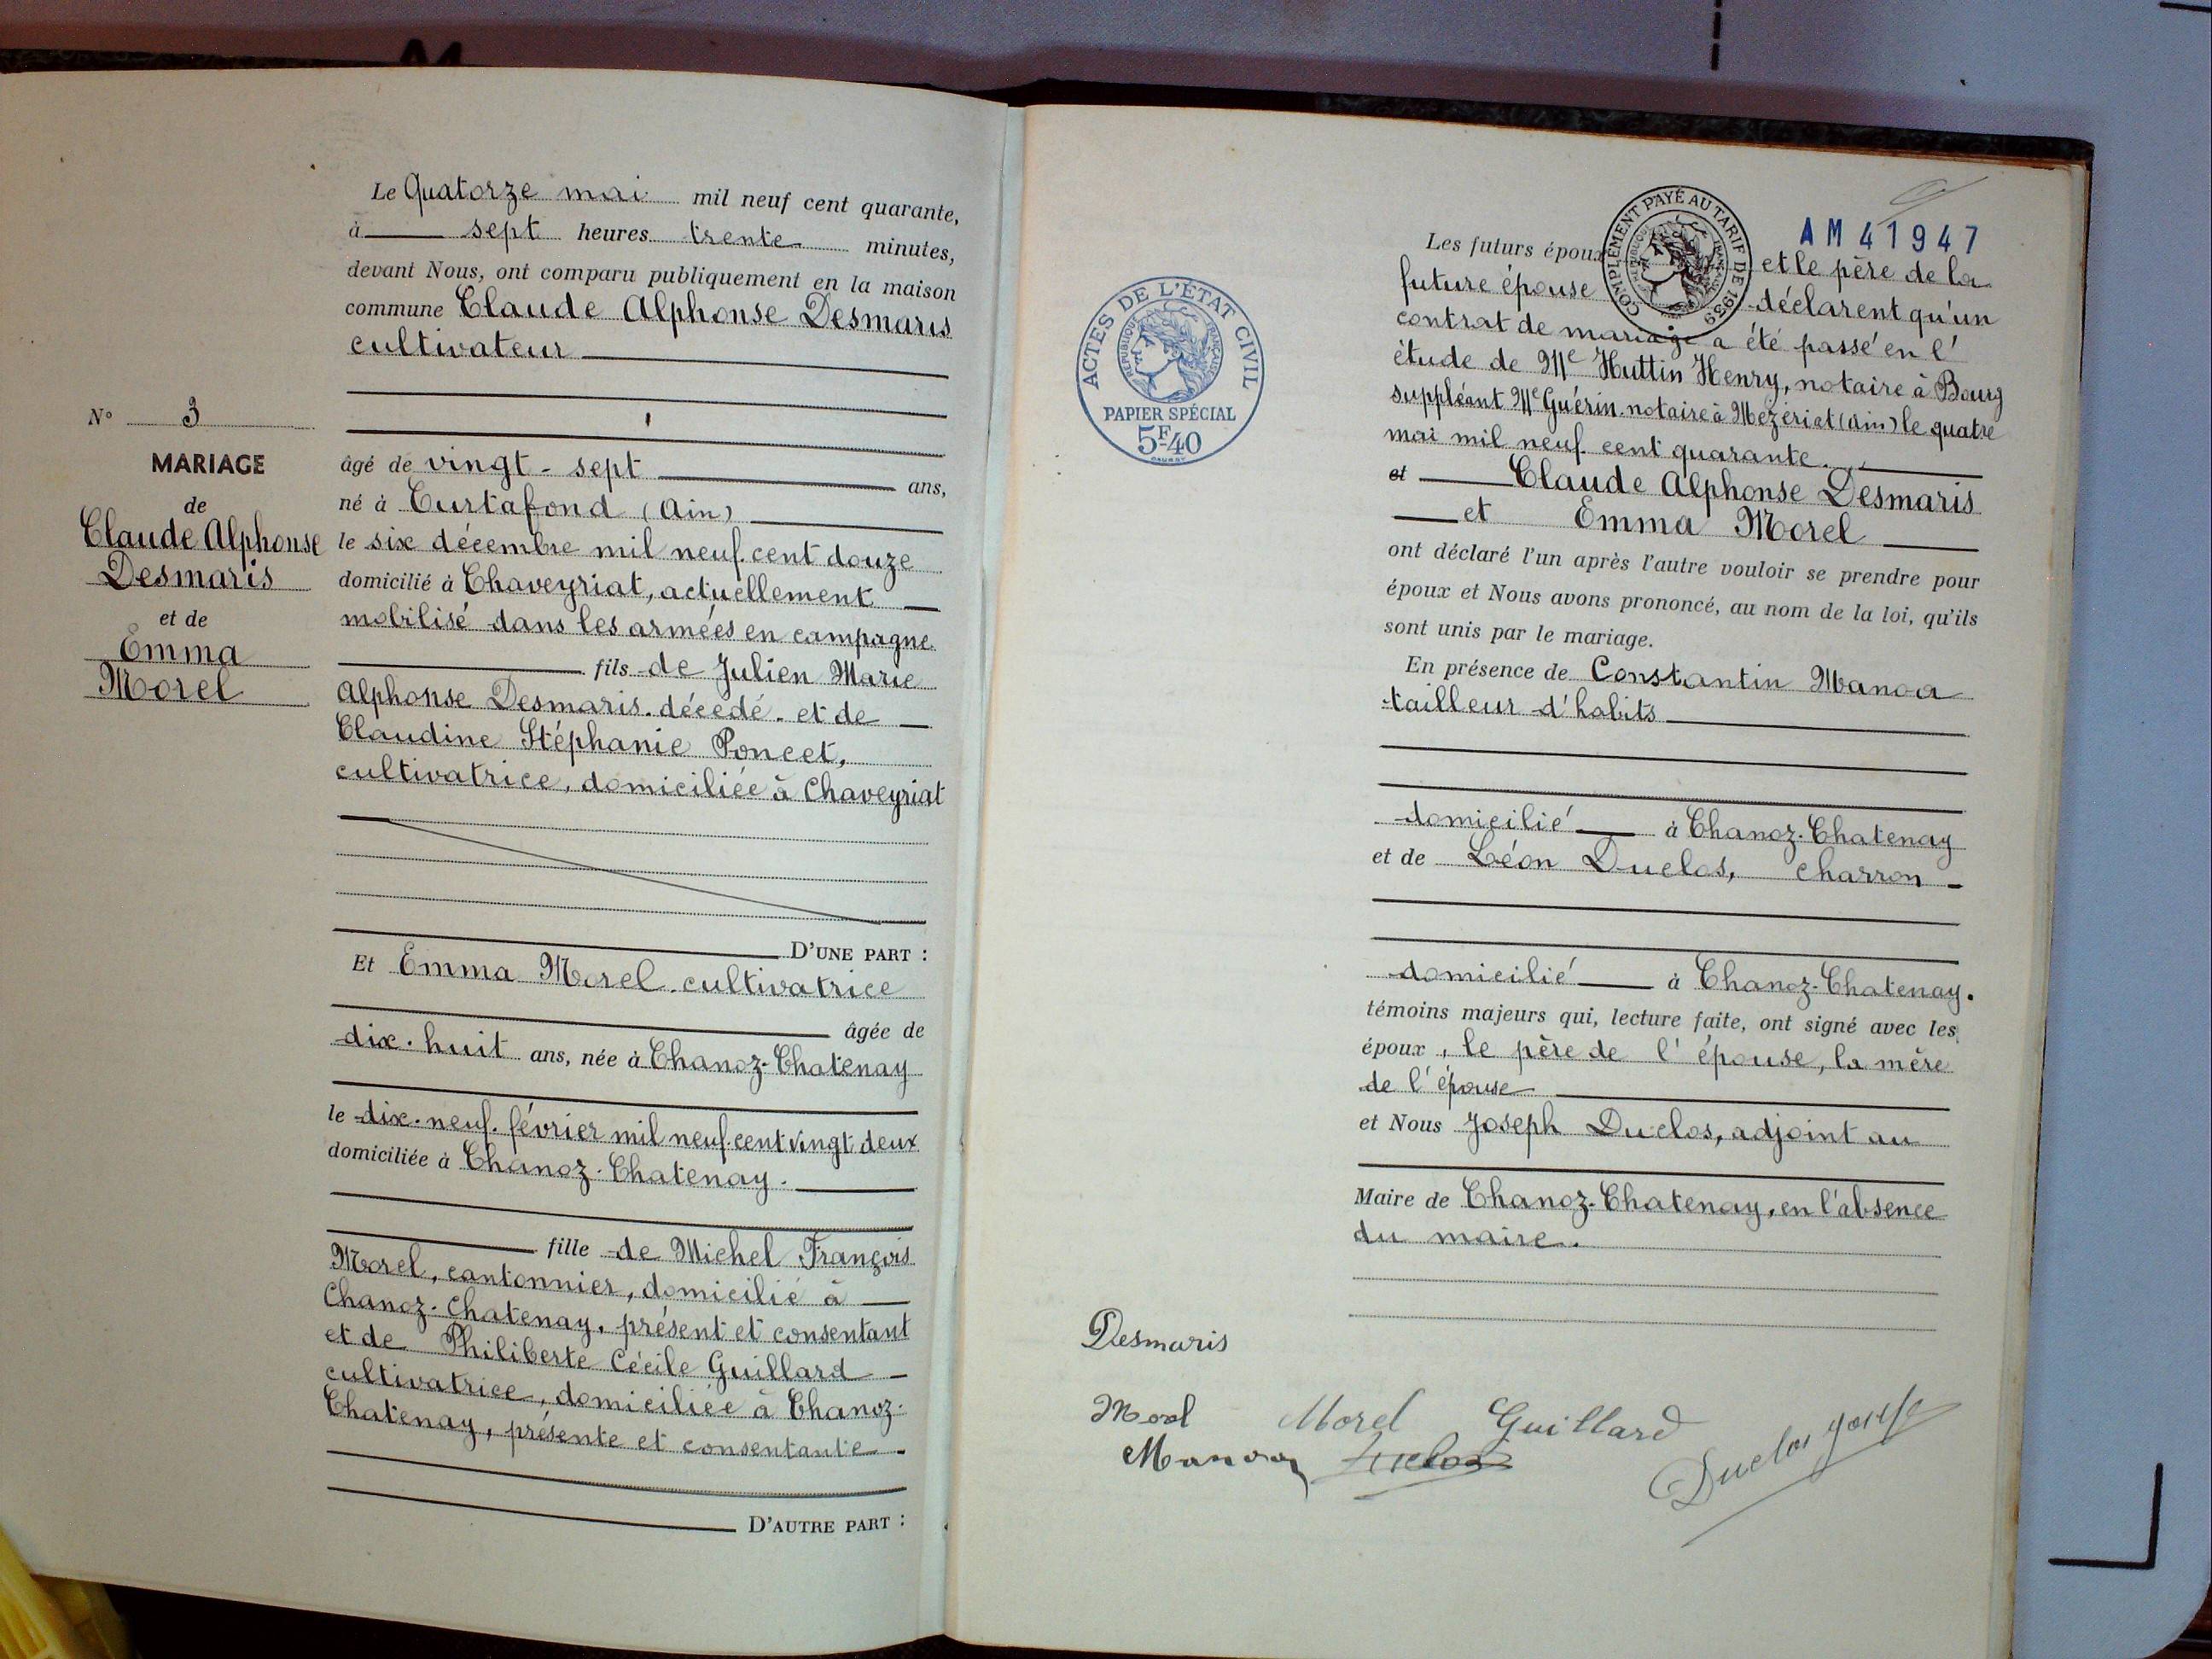 Le Quatorze mai mil neuf cent quarante,
à sept heures trente minutes,
devant Nous, ont comparu publiquement en la maison
commune Claude Alphonse Desmaris
cultivateur
N° 3
MARIAGE
de
Claude Alphonse
Desmaris
et de
Emma
Morel
âgé de vingt-sept ans,
né à Curtafond (Ain)
le six décembre mil neuf cent douze
domicilié à Chaveyriat, actuellement
mobilisé dans les armées en campagne
fils de Julien Marie
Alphonse Desmaris. décédé. et de
Claudine Stéphanie Poncet,
cultivatrice, domiciliée à Chaveyriat
D'UNE PART :
Et Emma Morel. cultivatrice
âgée de
dix.huit ans, née à Chanoz-Chatenay
le dix.neuf.février mil neuf.cent vingt deux
domiciliée à Chanoz-Chatenay.
fille de Michel François
Morel, cantonnier, domicilié à
Chanoz-Chatenay, présent et consentant
et de Philiberte Cécile Guillard
cultivatrice, domiciliée à Chanoz-
Chatenay, présente et consentante.
D'AUTRE PART :
ACTES DE L'ÉTAT CIVIL
RÉPUBLIQUE FRANÇAISE
PAPIER SPÉCIAL
5F40
COMPLÉMENT PAYÉ AU TARIF DE 1939
AM 41947
Les futurs époux et le père de la
future épouse déclarent qu'un
contrat de mariage a été passé en l'
étude de Me Huttin Henry, notaire à Bourg
suppléant Me Guérin notaire à Mézériat (Ain) le quatre
mai mil neuf cent quarante.
et Claude Alphonse Desmaris
et Emma Morel
ont déclaré l'un après l'autre vouloir se prendre pour
époux et Nous avons prononcé, au nom de la loi, qu'ils
sont unis par le mariage.
En présence de Constantin Manoa
tailleur d'habits
domicilié à Chanoz-Chatenay
et de Léon Duclos, charron
domicilié à Chanoz-Chatenay.
témoins majeurs qui, lecture faite, ont signé avec les
époux, le père de l'épouse, la mère
de l'épouse
et Nous Joseph Duclos, adjoint au
Maire de Chanoz-Chatenay, en l'absence
du maire.
Desmaris
Morel Morel Guillard
Duclos
Duclos Joseph